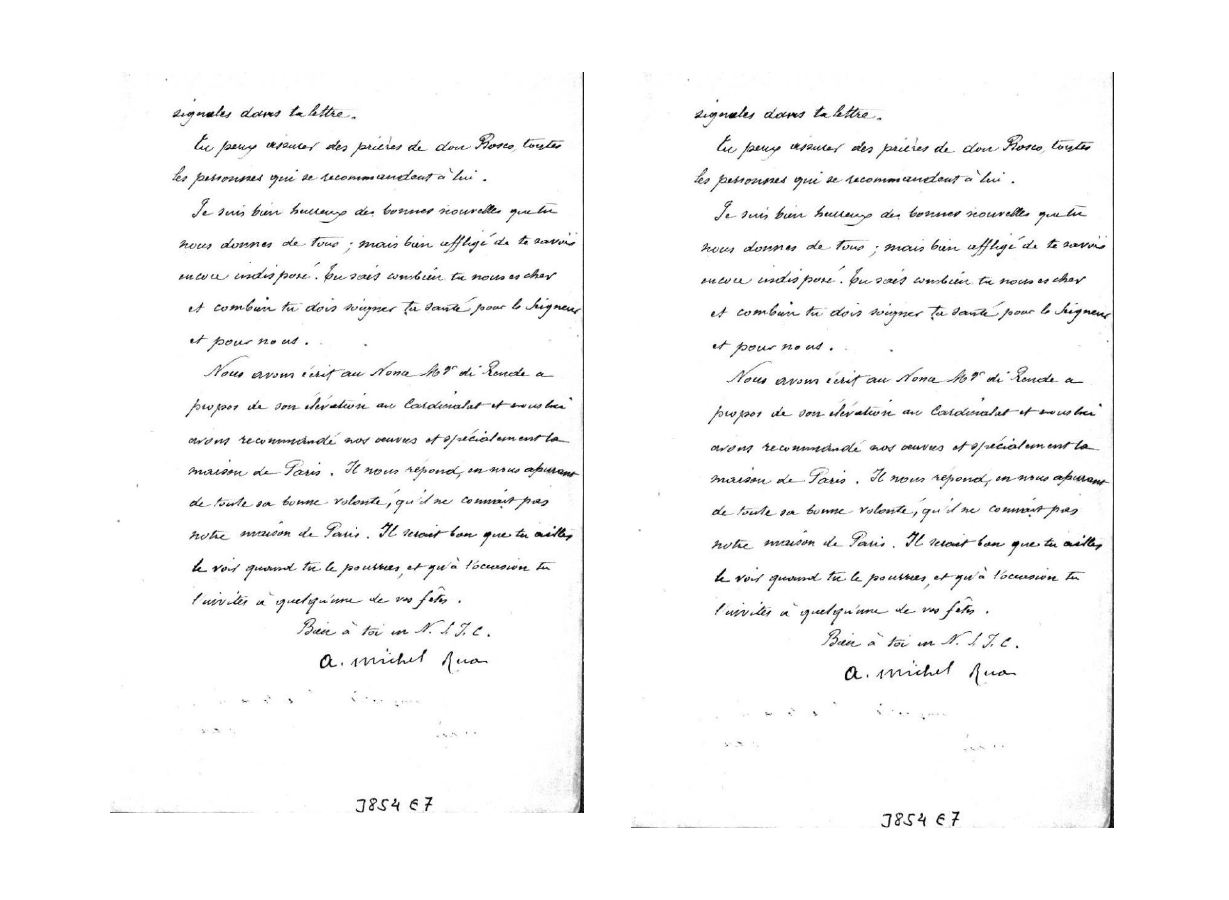 signales dans ta lettre.
Tu peux assurer des prières de don Bosco, toutes
les personnes qui se recommandent à lui.
Je suis bien heureux des bonnes nouvelles que tu
nous donnes de tous ; mais bien affligé de te savoir
encore indisposé. Tu sais combien tu nous es cher
et combien tu dois soigner ta santé pour le Seigneur
et pour nous.
Nous avons écrit au Nonce Mgr di Rende a
propos de son élévation au Cardinalat et nous lui
avons recommandé nos œuvres et spécialement la
maison de Paris. Il nous répond, en nous assurant
de toute sa bonne volonté, qu'il ne connait pas
notre maison de Paris. Il serait bon que tu ailles
le voir quand tu le pourras, et qu'à l'occasion tu
l'invites à quelqu'une de vos fêtes.
Bien à toi en N. S J. C.
a. Michel Rua
3854 E7
signales dans ta lettre.
Tu peux assurer des prières de don Bosco, toutes
les personnes qui se recommandent à lui.
Je suis bien heureux des bonnes nouvelles que tu
nous donnes de tous ; mais bien affligé de te savoir
encore indisposé. Tu sais combien tu nous es cher
et combien tu dois soigner ta santé pour le Seigneur
et pour nous.
Nous avons écrit au Nonce Mgr di Rende a
propos de son élévation au Cardinalat et nous lui
avons recommandé nos œuvres et spécialement la
maison de Paris. Il nous répond, en nous assurant
de toute sa bonne volonté, qu'il ne connait pas
notre maison de Paris. Il serait bon que tu ailles
le voir quand tu le pourras, et qu'à l'occasion tu
l'invites à quelqu'une de vos fêtes.
Bien à toi en N. S J. C.
a. Michel Rua
3854 E7